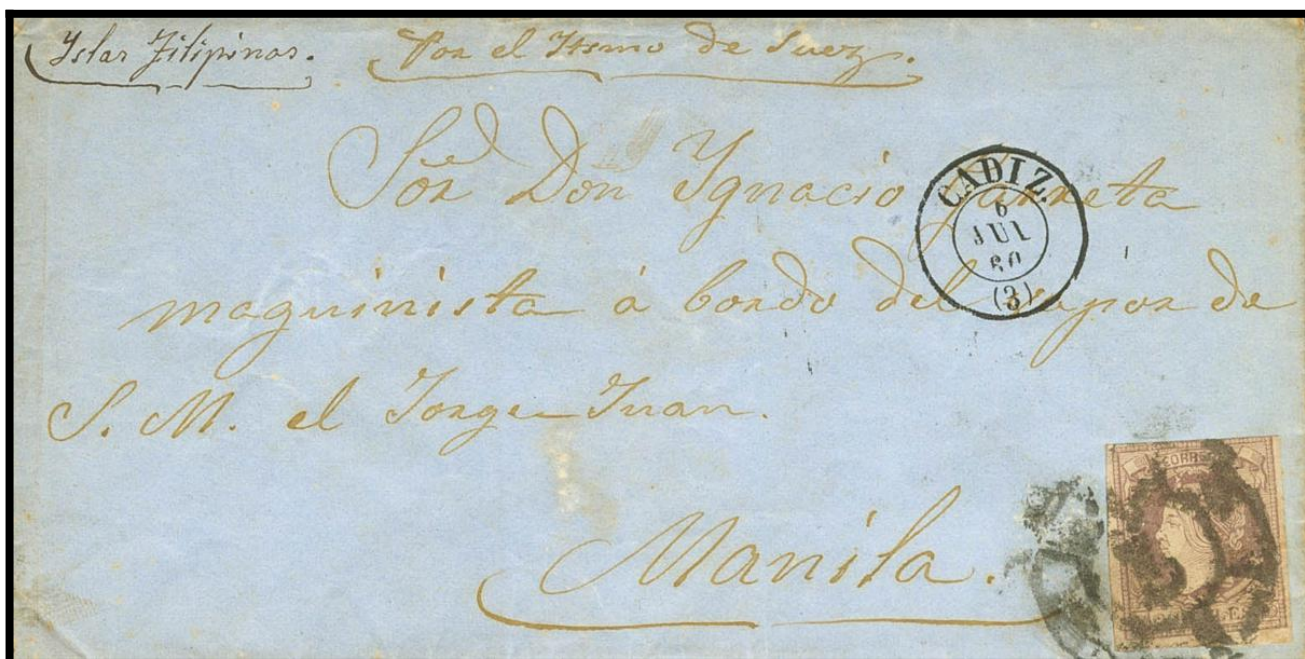 Yslas Filipinas. Por el Ytsmo de Suez.
Sor Don Ygnacio Zarreta
maquinista á bordo del vapor de
S. M. el Jorge Juan.
Manila.
CADIZ.
6
JUL
60
(3)
CORREOS